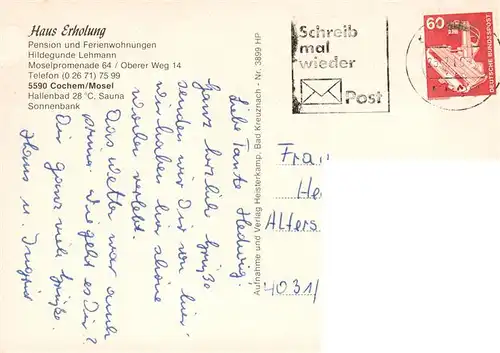 Haus Erholung
Pension und Ferienwohnungen
Hildegunde Lehmann
Moselpromenade 64 / Oberer Weg 14
Telefon (0 26 71) 75 99
5590 Cochem/Mosel
Hallenbad 28°C, Sauna
Sonnenbank
Liebe Tante Hedwig,
Ganz herzliche Grüße
senden wir Dir von hier.
Wir haben hier schöne
verlebt.
Das Wetter war auch
prima. Wie geht es Dir?
Dir ganz viele Grüße.
Hans u. Ingrid
Aufnahme und Verlag Heisterkamp, Bad Kreuznach - Nr. 3899 HP
Schreib
mal
wieder
Post
60
DEUTSCHE BUNDESPOST
Frau
He
Alters
4031/